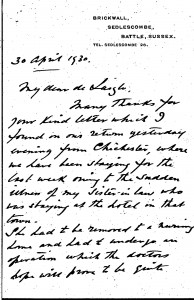 BRICKWALL,
SEDLESCOMBE,
BATTLE, SUSSEX.
TEL. SEDLESCOMBE 26.
30 April 1930.
My dear de
Many thanks for
your kind letter which I
found on our return yesterday
evening from Chichester, where
we have been staying for the
last week owing to the sudden
illness of my Sister-in-law who
was staying at the hotel in that
town.
She had to be removed to a nursing
home and had to undergo an
operation which the doctors
hope will prove to be quite